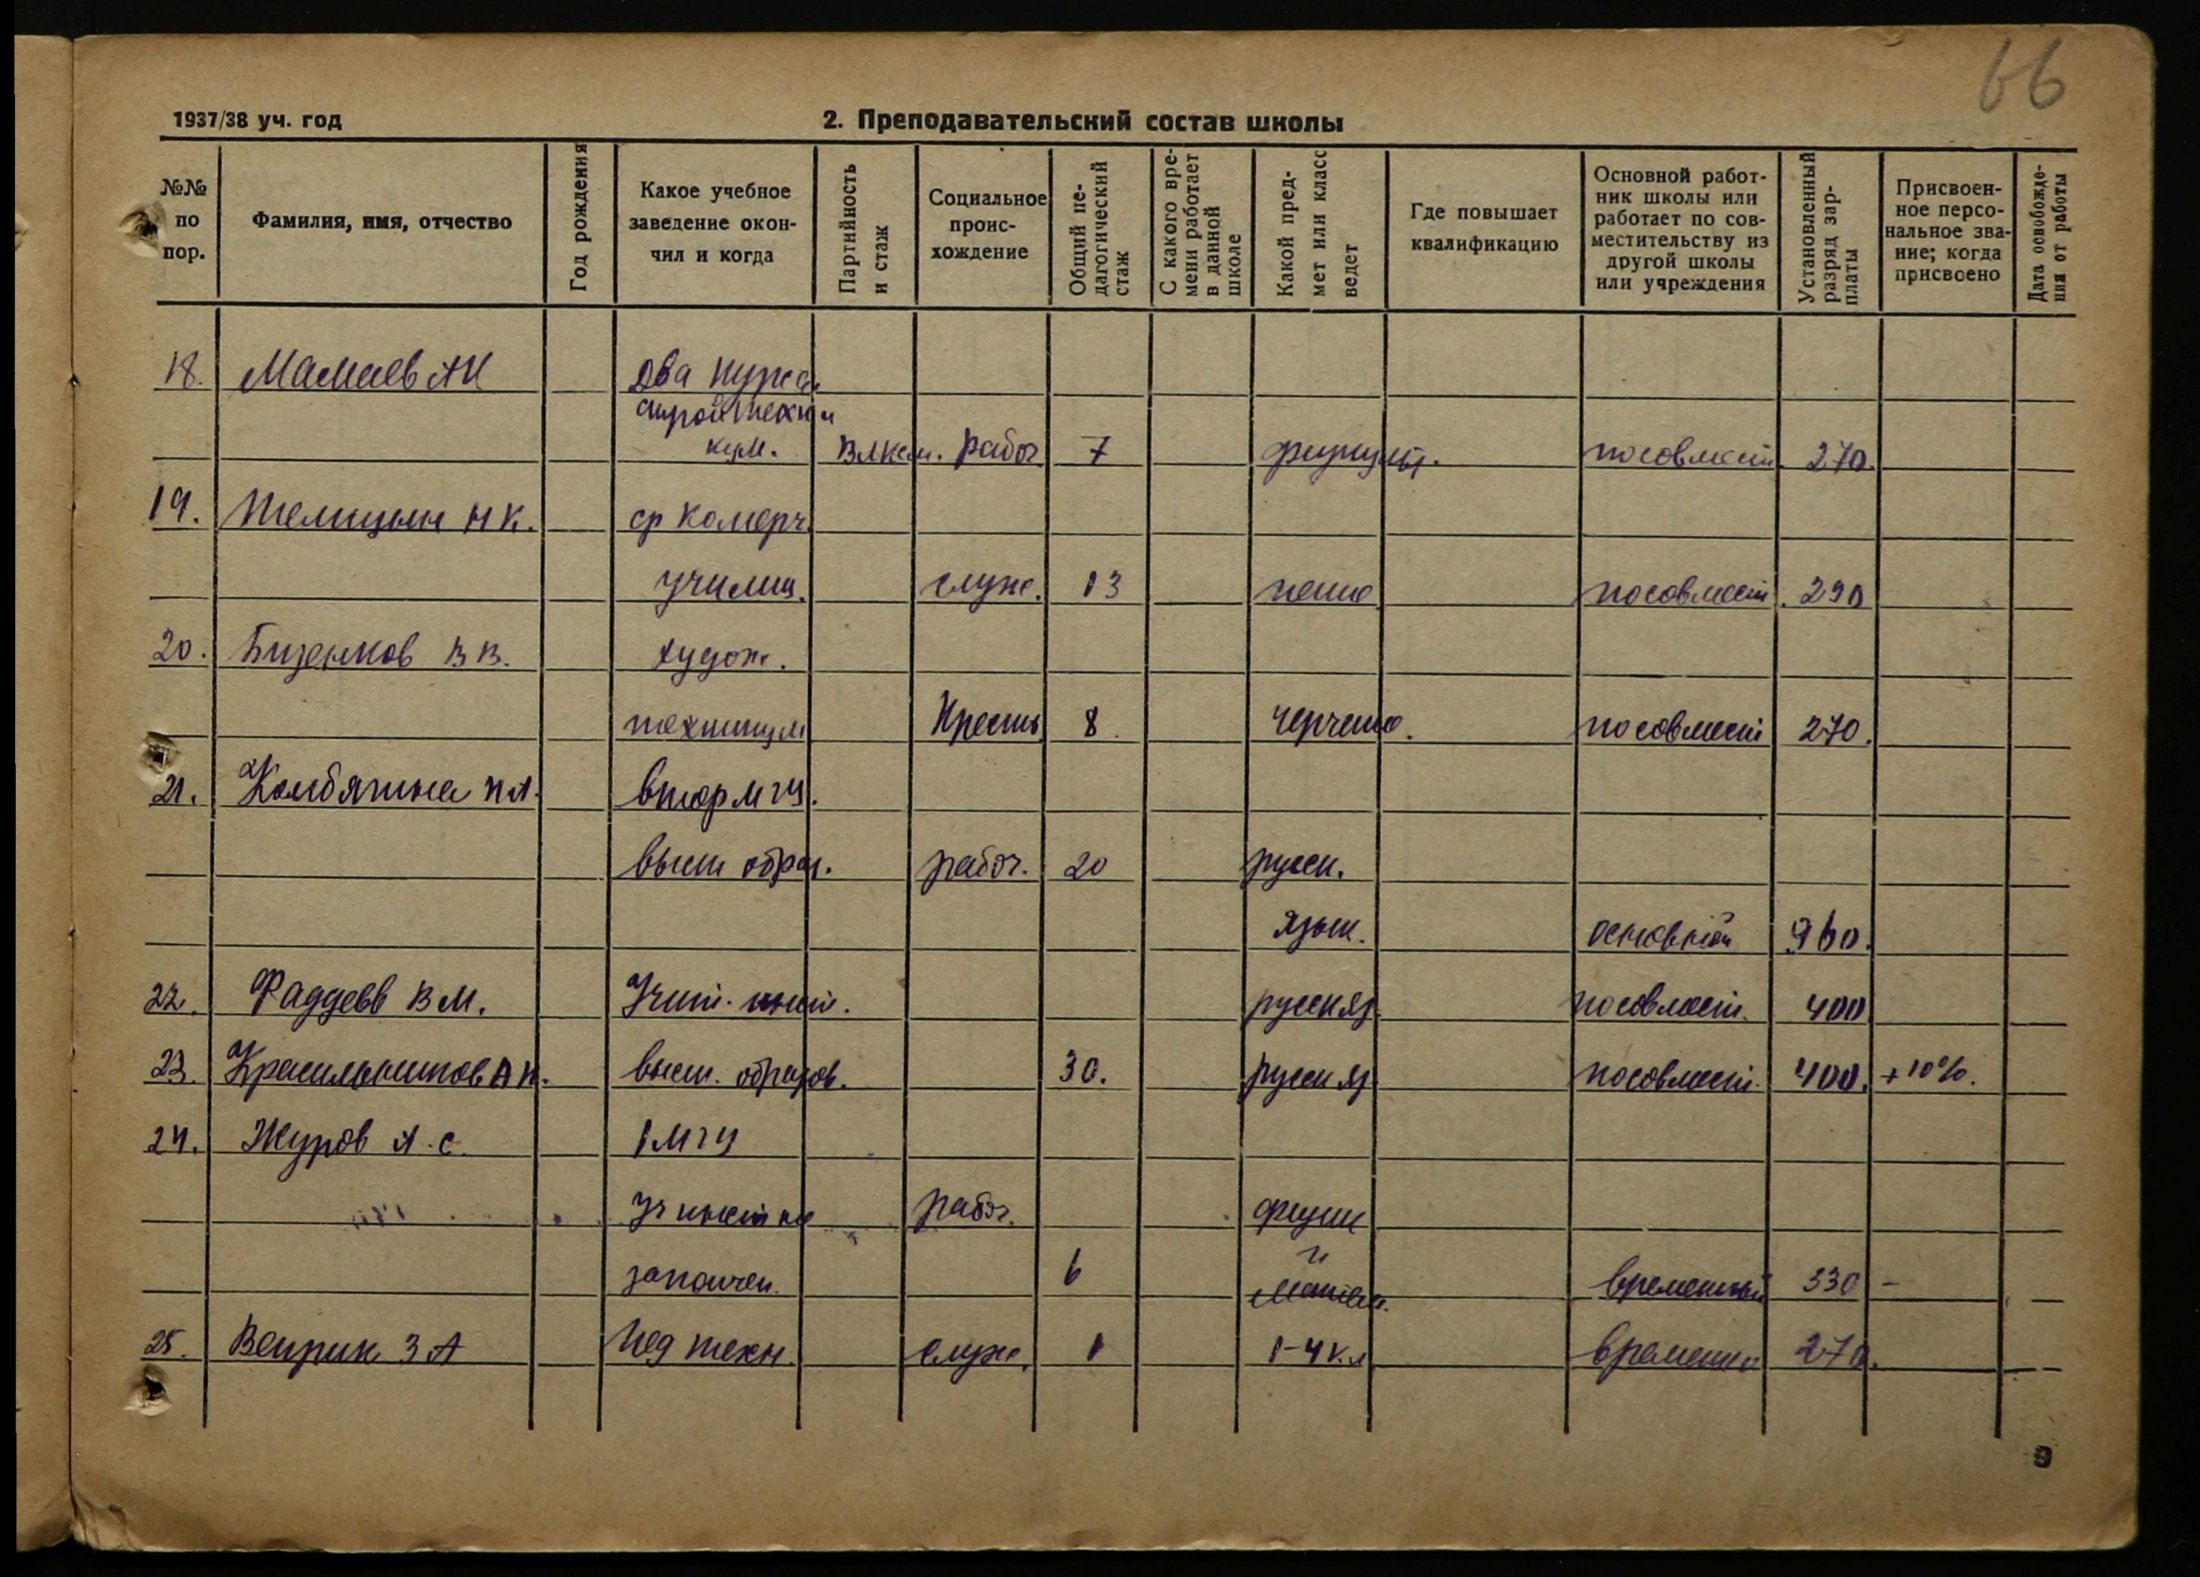 66
1937/38 уч. год
2. Преподавательский состав школы
№№ по пор.
Фамилия, имя, отчество
Год рождения
Какое учебное заведение окончил и когда
Партийность и стаж
Социальное происхождение
Общий педагогический стаж
С какого времени работает в данной школе
Какой предмет или класс ведет
Где повышает квалификацию
Основной работник школы или работает по совместительству из другой школы или учреждения
Установленный разряд зарплаты
Присвоенное персональное звание; когда присвоено
Дата освобождения от работы
18. Мамаев АН два курса
стройтехни
кум. влксм. рабоч 7 физкульт. посовмест. 270.
19. Телицын Н К. ср комерч.
училищ. служ. 13 пение посовмест. 290
20. Бизенков В В. худож.
техникум Кресть 8 черчение. посовмест 270.
21. втор МГУ.
высш образ. рабоч. 20 русск.
язык. основной 960.
22. Фаддеев В М. Учит. инст. русск яз. посовмест. 400
23. Красильников А Н. высш. образов. 30. русск яз посовмест. 400. +10%.
24. Журов А. С. 1 МГУ
Уч инст не рабоч. физик
закончен. 6 и матем. временный 330 –
25. Веприк З А Пед техн. служ. 1 1-4 кл временно 270.
9